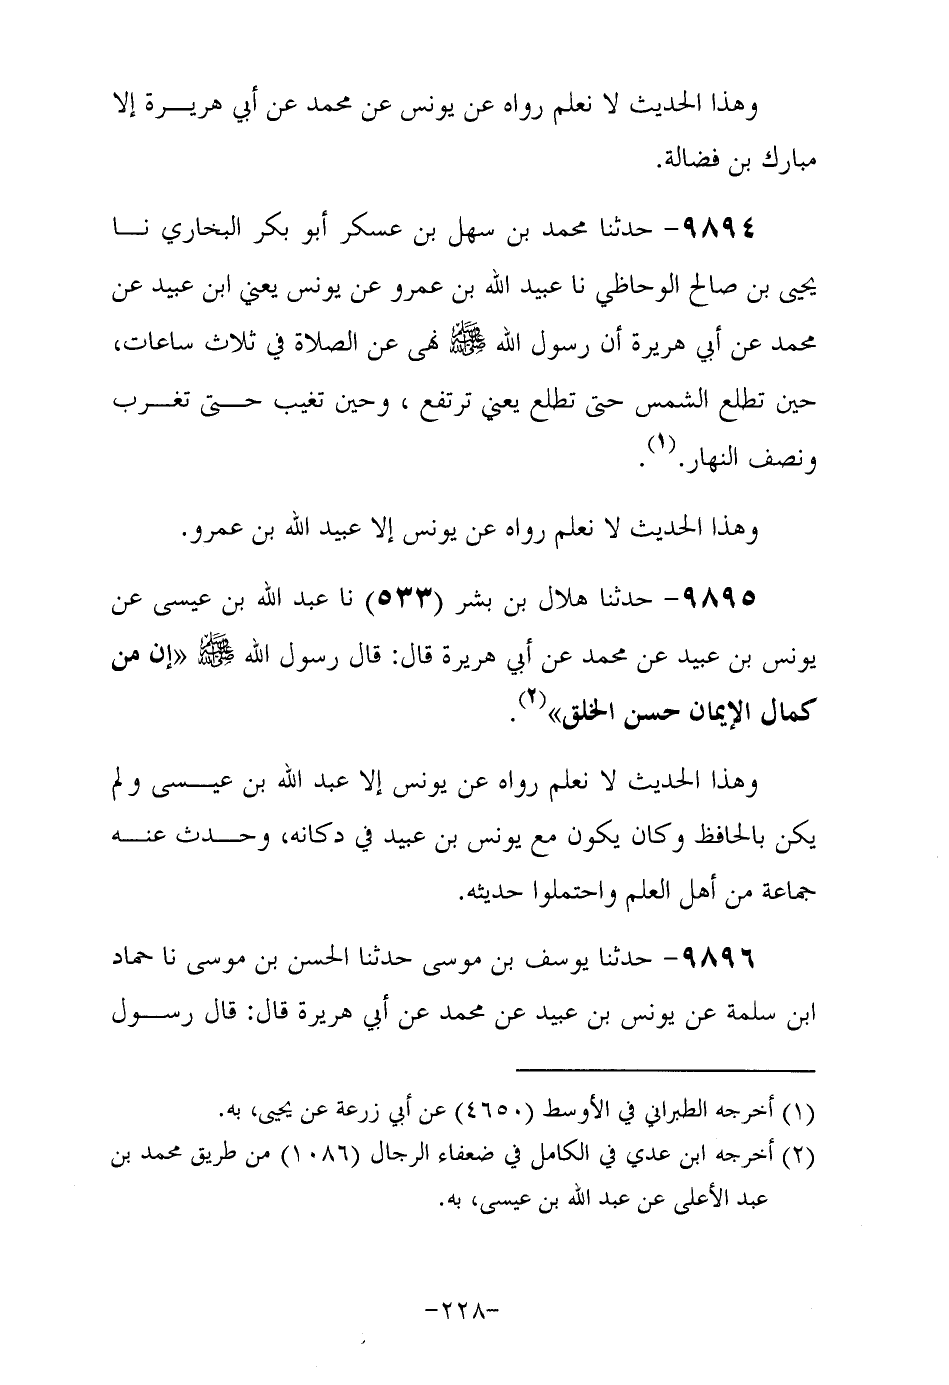 وهذا الحديث لا نعلم رواه عن يونس عن محمد عن أبي هريرة إلا
مبارك بن فضالة.
٩٨٩٤- حدثنا محمد بن سهل بن عسكر أبو بكر البخاري نا
يحيى بن صالح الوحاظي نا عبيد الله بن عمرو عن يونس يعني ابن عبيد عن
محمد عن أبي هريرة أن رسول الله ﷺ نهى عن الصلاة في ثلاث ساعات،
حين تطلع الشمس حتى تطلع يعني ترتفع ، وحين تغيب حتى تغرب
ونصف النهار.(١).
وهذا الحديث لا نعلم رواه عن يونس إلا عبيد الله بن عمرو.
٩٨٩٥- حدثنا هلال بن بشر (٥٣٣) نا عبد الله بن عيسى عن
يونس بن عبيد عن محمد عن أبي هريرة قال: قال رسول الله ﷺ «إن من
كمال الإيمان حسن الخلق»(٢).
وهذا الحديث لا نعلم رواه عن يونس إلا عبد الله بن عيسى ولم
يكن بالحافظ وكان يكون مع يونس بن عبيد في دكانه، وحدث عنه
جماعة من أهل العلم واحتملوا حديثه.
٩٨٩٦- حدثنا يوسف بن موسى حدثنا الحسن بن موسى نا حماد
ابن سلمة عن يونس بن عبيد عن محمد عن أبي هريرة قال: قال رسول
(١) أخرجه الطبراني في الأوسط (٤٦٥٠) عن أبي زرعة عن يحيى، به.
(٢) أخرجه ابن عدي في الكامل في ضعفاء الرجال (١٠٨٦) من طريق محمد بن
عبد الأعلى عن عبد الله بن عيسى، به.
-٢٢٨-